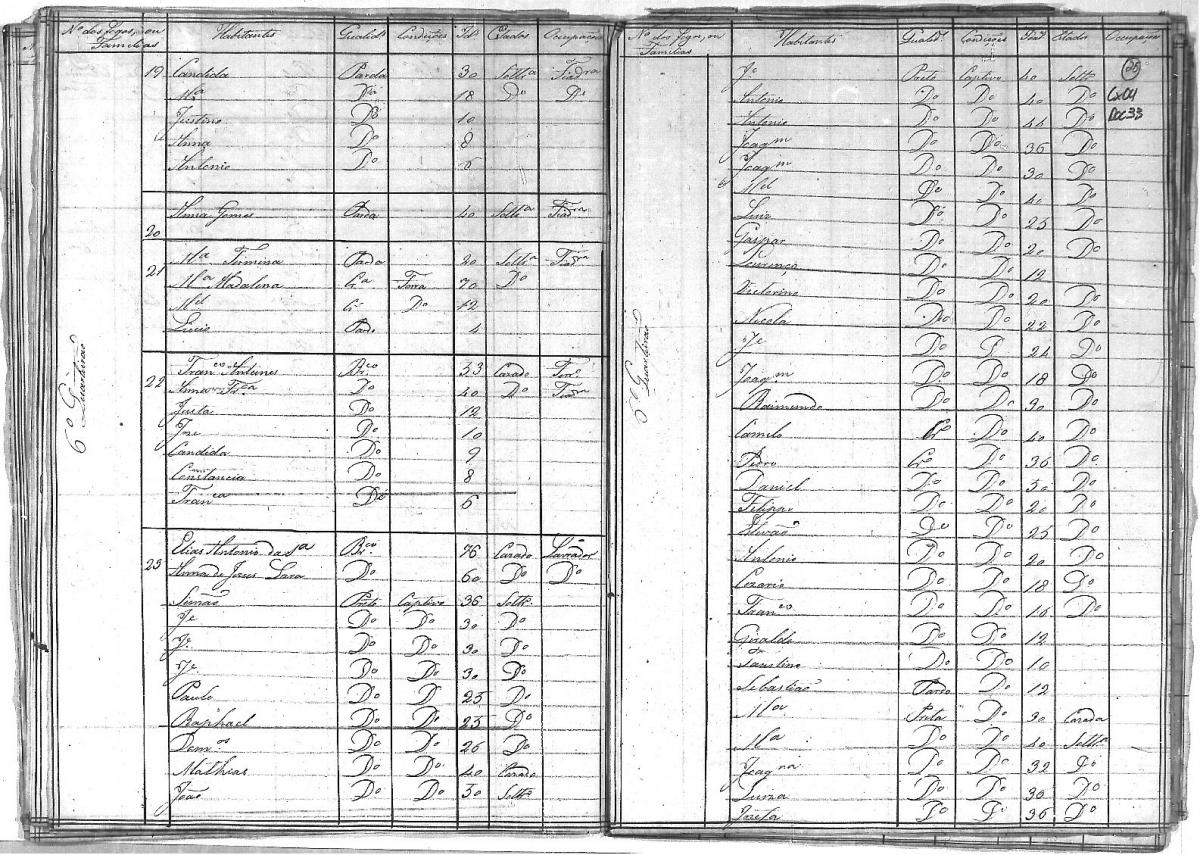 Nº dos fogos, ou Familias Habitantes Qualidᵉ Condições Idᵉ Estados Ocupação
19 Candida Parda 30 Soltᵃ Fiadʳᵃ
Mᵃ Dᵃ 18 Dº Dº
Justino Dº 10
Anna Dº 8
Antonio Dº 6
20 Anna Gomes Parda 40 Soltᵃ Fiadʳᵃ
21 Mᵃ Firmina Parda 20 Soltᵃ Fiadʳᵃ
Mᵃ Madalena Crᵃ Forra 70 Dº
Mᵉˡ Crº Dº 42
Lucio Pardo 4
22 Franᶜᵒ Antunes Brᶜᵒ 53 Casado
Anna Frᶜᵃ Dº 40 Dº Fiadʳᵃ
Justa Dº 12
Jose Dº 10
Candida Dº 9
Constancia Dº 8
Franᶜᵃ Dº 6
23 Elias Antonio da Sᵃ Brᶜᵒ 76 Casado Lavrador
Anna de Jesus Lara Dº 60 Dº Dº
Simão Preto Captivo 36 Soltº
Jᵉ Dº Dº 30 Dº
Jᵉ Dº Dº 30 Dº
Jᵉ Dº Dº 30 Dº
Paulo Dº Dº 25 Dº
Raphael Dº Dº 25 Dº
Domᵒˢ Dº Dº 26 Dº
Mathias Dº Dº 40 Casado
João Dº Dº 50 Soltº
6º Quarteirão
Nº dos fogos, ou Familias Habitantes Qualidᵉ Condições Idᵉ Estado Ocupação
28
Cx04
Doc33
Jᵉ Preto Captivo 40 Soltº
Antonio Dº Dº 40 Dº
Antonio Dº Dº 44 Dº
Joaqᵐ Dº Dº 36 Dº
Joaqᵐ Dº Dº 30 Dº
Mᵉˡ Dº Dº 40 Dº
Luiz Dº Dº 25 Dº
Gaspar Dº Dº 20 Dº
Lourenço Dº Dº 19
Victorino Dº Dº 20 Dº
Nicola Dº Dº 22 Dº
Jᵉ Dº Dº 24 Dº
Joaqᵐ Dº Dº 18 Dº
Raimundo Dº Dº 30 Dº
Camilo Crº Dº 40 Dº
Pedro Crº Dº 36 Dº
Daniel Dº Dº 30 Dº
Filippe Dº Dº 20 Dº
Estevão Dº Dº 25 Dº
Antonio Dº Dº 20 Dº
Cezario Dº Dº 18 Dº
Franᶜᵒ Dº Dº 16 Dº
Giraldo Dº Dº 12
Faustino Dº Dº 10
Sebastião Pardo Dº 12
Mᵃ Preta Dº 30 Casada
Mᵃ Dº Dº 40 Soltᵃ
Joaqⁿᵃ Dº Dº 32 Dº
Luna Dº Dº 30 Dº
Josefa Dº Dº 36 Dº
6º Quarteirão